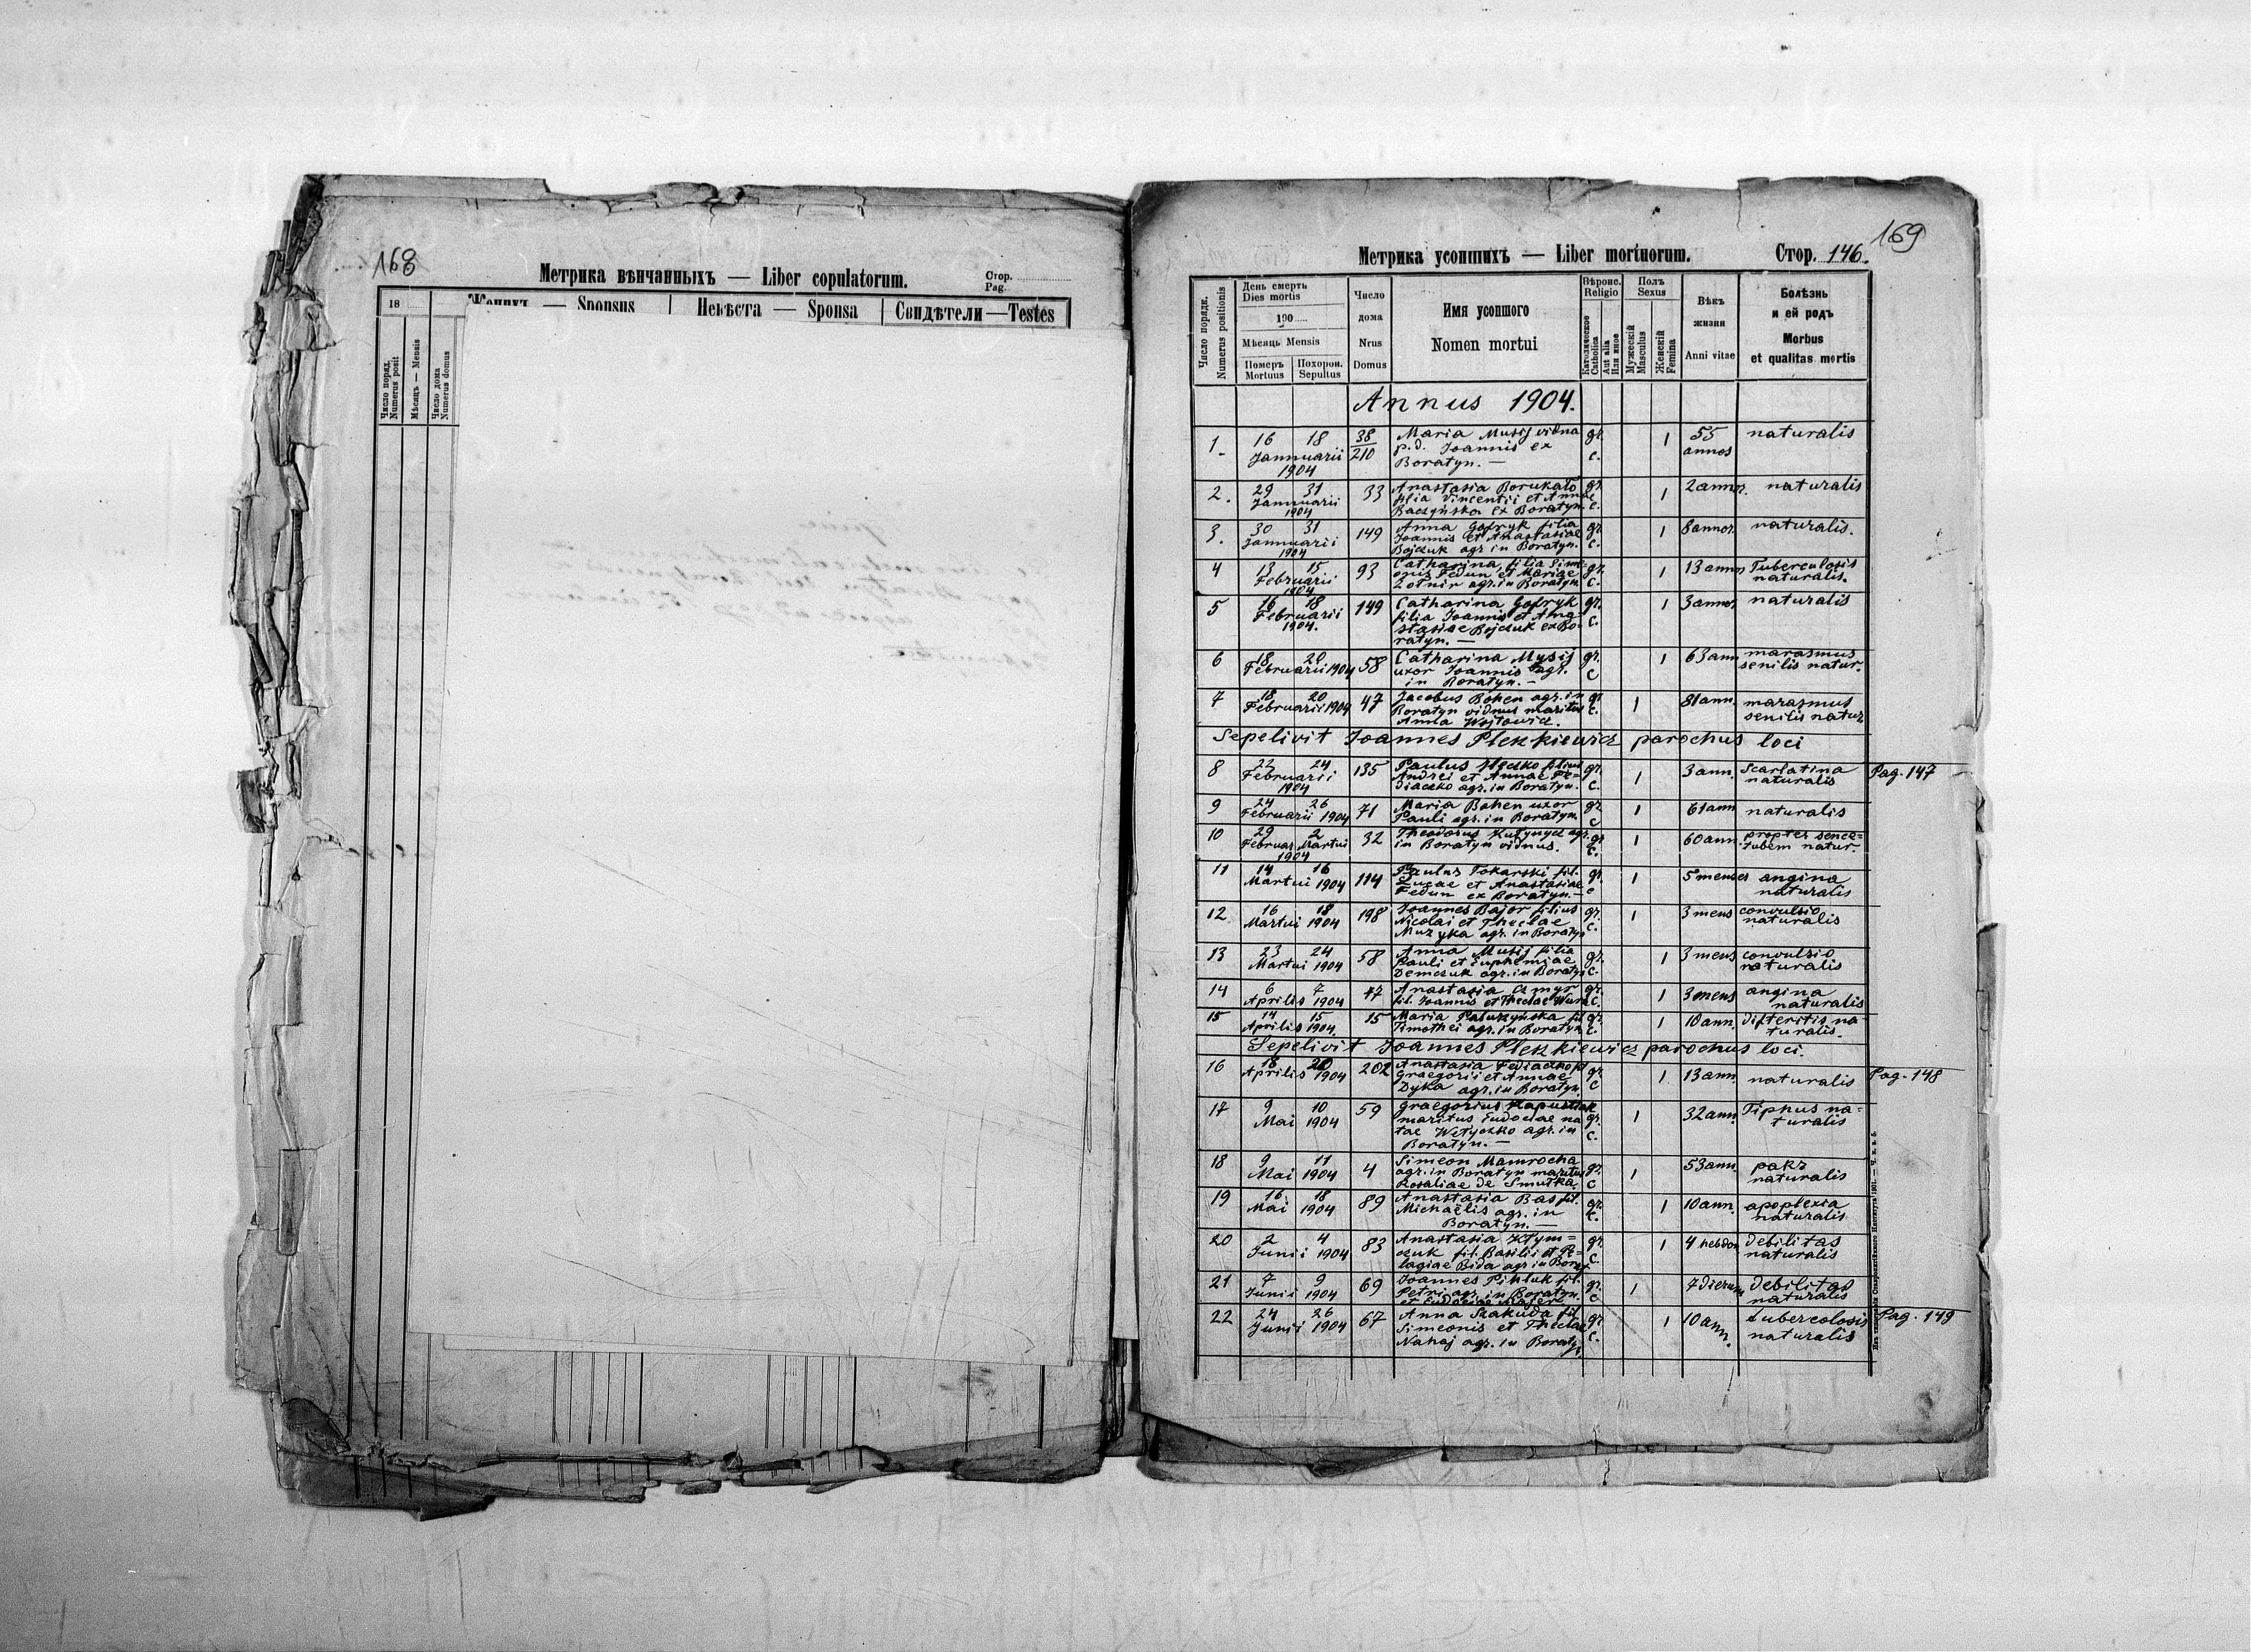 168
Метрика вѣнчанныхъ — Liber copulatorum.
Стор.
Pag.
18
— Sponsus
Невѣста — Sponsa
Свидѣтели — Testes
Число поряд.
Numerus posit
Мѣсяць — Mensis
Число дома
Numerus domus
169
Метрика усопшихъ — Liber mortuorum.
Стор. 146.
Число порядк.
Numerus positionis
День смерть
Dies mortis
190
Мѣсяць Mensis
Померъ
Mortuus
Похорон.
Sepultus
Число
дома
Nrus
Domus
Имя усопшого
Nomen mortui
Вѣроис.
Religio
Католическое
Catholica
Aut alia
Или иное
Полъ
Sexus
Мужескій
Masculus
Женскій
Femina
Вѣкъ
жизни
Anni vitae
Болѣзнь
и ей родъ
Morbus
et qualitas mortis
Annus 1904.
1. 16 18 38/210 Maria Musij vidua gr. 1 55 naturalis
Jannuarii p.d. Joannis ex c. annos
1904 Boratyn. —
2. 29 31 33 Anastasia Borukało gr. 1 2 annor. naturalis
Jannuarii filia Vincentii et Annae c.
1904 Baczyńska ex Boratyn.
3. 30 31 149 Anna Gofryk filia gr. 1 8 annor. naturalis.
Jannuarii Joannis et Anastasiae c.
1904 Bojczuk agr. in Boratyn.
4 13 15 93 Catharina filia Sime- gr. 1 13 annor Tuberculosis
Februarii onis Fedun et Mariae c. naturalis.
1904 Zołnir agr. in Boratyn
5 16 18 149 Catharina Gofryk gr. 1 3 annor. naturalis
Februarii filia Joannis et Ana c.
1904. stasiae Bojczuk ex Bo-
ratyn. —
6 18 20 58 Catharina Mysij gr. 1 63 ann marasmus
Februarii 1904 uxor Joannis agr. c senilis natur.
in Boratyn. —
7 18 20 47 Jacobus Bohen agr. in gr. 1 81 ann. marasmus
Februarii 1904 Boratyn viduus maritus c. senilis natur
Anna Wojtowicz.
Sepelivit Joannes Plezkiewicz parochus loci
8 22 24 135 Paulus filius gr. 1 3 ann. Scarlatina Pag. 147
Februarii Andrei et Annae Fe= c. naturalis
1904 diaczko agr. in Boratyn.
9 24 26 71 Maria Bohen uxor gr 1 61 ann naturalis
Februarii 1904 Pauli agr. in Boratyn. c
10 29 2 32 Theodorus Kutynycz agr. gr 1 60 ann. propter senec=
Februar Martii in Boratyn viduus. c. tubem natur.
1904
11 14 16 114 Paulus Tokarski fil. gr. 1 5 menses angina
Martii 1904 Lucae et Anastasiae c naturalis
Fedun ex Boratyn. —
12. 16 18 198 Joannes Bajor filius gr. 1 3 mens convulsio
Martii 1904 Nicolai et Theclae c. naturalis
Muzyka agr. in Boratyn
13 23 24 58 Anna Musij filia gr. 1 3 mens convulsio
Martii 1904 Pauli et Euphemiae c. naturalis
Demczuk agr. in Boratyn
14 6 7 47 Anastasia Czmyr gr. 1 3 mens angina
Aprilis 1904 fil. Joannis et Theclae c. naturalis
15 14 15 15 Maria Paluszyńska fil gr. 1 10 ann. difteritis na-
Aprilis 1904 Timothei agr. in Boratyn c. turalis.
Sepelivit Joannes Plezkiewicz parochus loci.
16 18 20 202 Anastasia Fediaczko fil gr 1 13 ann. naturalis Pag. 148
Aprilis 1904 Graegorii et Annae c
Dyka agr. in Boratyn.
17 9 10 59 Graegorius Kapustiak gr. 1 32 ann. Tiphus na=
Mai 1904 maritus Eudociae na c. turalis
tae Wetyczko agr. in
Boratyn. —
18 9 11 4 Simeon Mamrocha gr. 1 53 ann.
Mai 1904 agr. in Boratyn maritus c naturalis
Rosaliae de Smutka.
19 16 18 89 Anastasia Bas fil. gr. 1 10 ann. apoplexia
Mai 1904 Michaëlis agr. in c. naturalis
Boratyn. —
20 2 4 83 Anastasia Kłym= gr. 1 4 hebdom debilitas
Junii 1904 czuk fil. Basilii et Pe= c. naturalis
lagiae Bida agr in Borat
21 7 9 69 Joannes Pihluk fil. gr. 1 7 dierum debilitas
Junii 1904 Petri agr. in Boratyn. c naturalis
et Eudociae Majer
22 24 26 67 Anna Szakuda fil gr. 1 10 ann. tubercolosis Pag. 149
Junii 1904 Simeonis et Theclae c. naturalis
Nahaj agr. in Boratyn